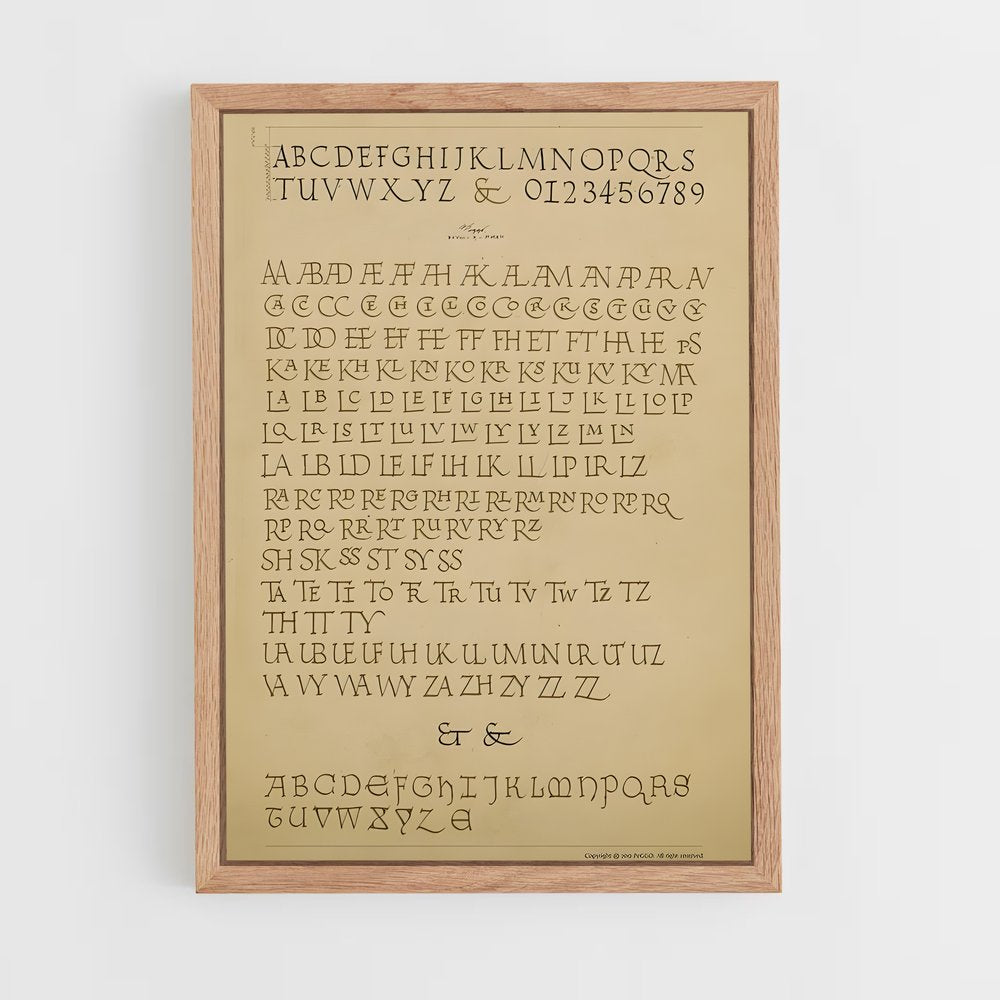 ABCDEFGHIJKLMNOPQRS
TUVWXYZ & 0123456789
AA AB AD AE AF AH AK AL AM AN AP AR AV
DC DO EE EF FE FF FH ET FT HA HE PS
KA KE KH KL KN KO KR KS KU KV KY MA
LA LB LC LD LE LF LG LH LI LJ LK LL LO LP
LQ LR LS LT LU LV LW LY LY LZ LM LN
LA LB LD LE LF LH LK LL LP LR LZ
RA RC RD RE RG RH RI RL RM RN RO RP RQ
RP RQ RR RT RU RV RY RZ
SH SK SS ST SY SS
TA TE TI TO TR TR TU TV TW TZ TZ
TH TT TY
UA UB UE UF UH UK UL UM UN UR UT UZ
VA VY WA WY ZA ZH ZY ZZ ZZ
& &
ABCDEFGHIJKLMNPQRS
TUVWXYZE
Copyright © All rights reserved